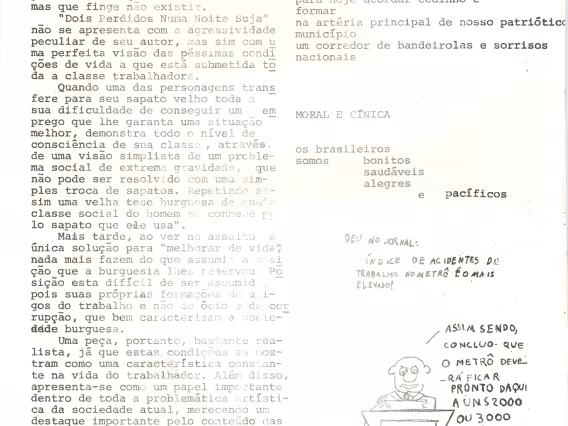 mas que finge não existir.
"Dois Perdidos Numa Noite Suja"
não se apresenta com a agressividade
peculiar de seu autor, mas sim com u
ma perfeita visão das péssimas condi
ções de vida a que está submetida to
da a classe trabalhadora.
Quando uma das personagens trans
fere para seu sapato velho toda a
sua dificuldade de conseguir um em
prego que lhe garanta uma situação
melhor, demonstra todo o nível de
consciência de sua classe, através
de uma visão simplista de um proble-
ma social de extrema gravidade, que
não pode ser resolvido com uma sim-
ples troca de sapatos. Repetindo as-
sim uma velha tese burguesa de que "a
classe social do homem se conhece pe
lo sapato que ele usa".
Mais tarde, ao ver no assalto a
única solução para "melhorar de vida",
nada mais fazem do que assumir a posi
ção que a burguesia lhes reservou. Po
sição esta difícil de ser assumida,
pois suas próprias formações de a i-
gos do trabalho e não do ócio e da cor
rupção, que bem caracterizam a socie-
dade burguesa.
Uma peça, portanto, bastante rea-
lista, já que estas condições se mos-
tram como uma característica constan-
te na vida do trabalhador. Além disso,
apresenta-se com um papel importante
dentro de toda a problemática artísti-
ca da sociedade atual, merecendo um
destaque importante pelo conteúdo das
para hoje acordar cedinho e
formar
na artéria principal de nosso patriótico
município
um corredor de bandeirolas e sorrisos
nacionais
MORAL E CÍNICA
os brasileiros
somos bonitos
saudáveis
alegres
e pacíficos
DEU NO JORNAL:
ÍNDICE DE ACIDENTES DE
TRABALHO NO METRÔ É O MAIS
ELEVADO!
ASSIM SENDO,
CONCLUO QUE
O METRÔ DEVE-
RÁ FICAR
PRONTO DAQUI
A UNS 2000
OU 3000